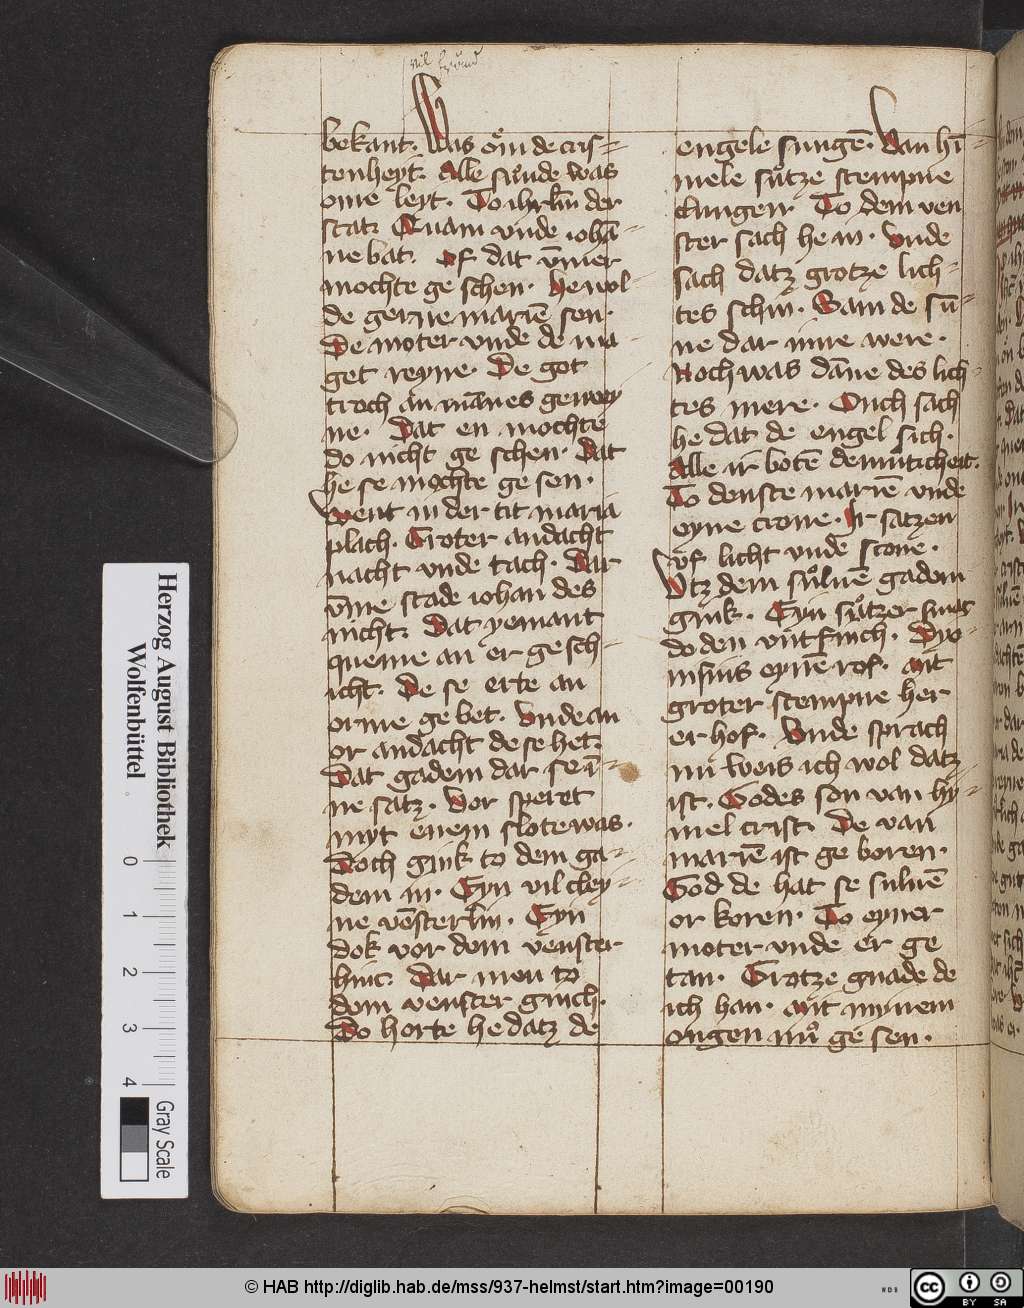 bekant. Was öm de cris-
tenheyt. Alle sunde was
ome leyt. To ihrlm̄ der
stat. Quam vnde iohā-
ne bat. Of dat v̄mer
mochte ge schen. He wol-
de gerne mariē sen.
De moter vnde de ma-
get reyne. De got
troch an mānes gemey
ne. Dat en mochte
do nicht ge schen. Dat
he se mochte ge sen.
Went in der tit maria
plach. Groter andacht
nacht vnde tach. Dar
v̄me stade iohan des
nicht. Dat yemant
queme an er gesch-
icht. De se erte an
orme ge bet. Vnde an
or andacht de se het.
Dat gadem dar se ī-
ne satz. Vor speret
myt enem slote was.
Doch gink to dem ga-
dem in. Eyn vil cley-
ne vēsterlīn. Eyn
dok vor dem venster
hinc. Dar men to
dem venster ginch.
Do horte he datz de
engele sungē. Van hī
mele sůtze stempne
clungen. To dem ven
ster sach he in. Vnde
sach datz grotze lich-
tes schin. Sam de sū-
ne dar inne were.
Noch was dāne des lich-
tes mere. Ouch sach
he dat de engel sich.
Alle ir botē demůticheit.
To denste mariē vnde
eyne crone. Ir satzen
vf licht vnde scone.
Vtz dem sůluē gadem
gink. Eyn sůtzer smac
do den
groter stempne her
er hof. Vnde sprach
nu weis ich wol datz
ist. Godes son van hy-
mel crist. De van
mariē ist ge boren.
God de hat se suluē
or koren. To eyner
moter vnde er ge
tan. Grotze gnade de
ich han. Mit minem
ongen nů ge sen.
Herzog August Bibliothek
Wolfenbüttel
0 1 2 3 4
Gray Scale
© HAB http://diglib.hab.de/mss/937-helmst/start.htm?image=00190
WDB
cc BY SA